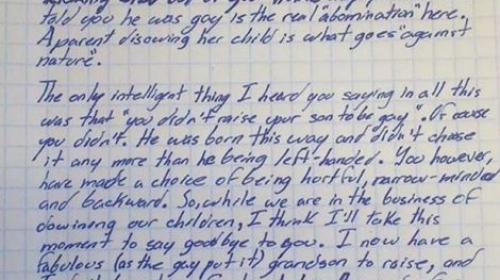 told you he was gay is the real "abomination" here.
A parent disowing her child is what goes "against
nature".
The only intelligent thing I heard you saying in all this
was that "you didn't raise your son to be gay". Of couse
you didn't. He was born this way and didn't choose
it any more than he being left-handed. You however,
have made a choice of being hurtful, narrow-minded
and backward. So, while we are in the business of
disowning our children, I think I'll take this
moment to say goodbye to you. I now have a
fabulous (as the gay put it) grandson to raise, and